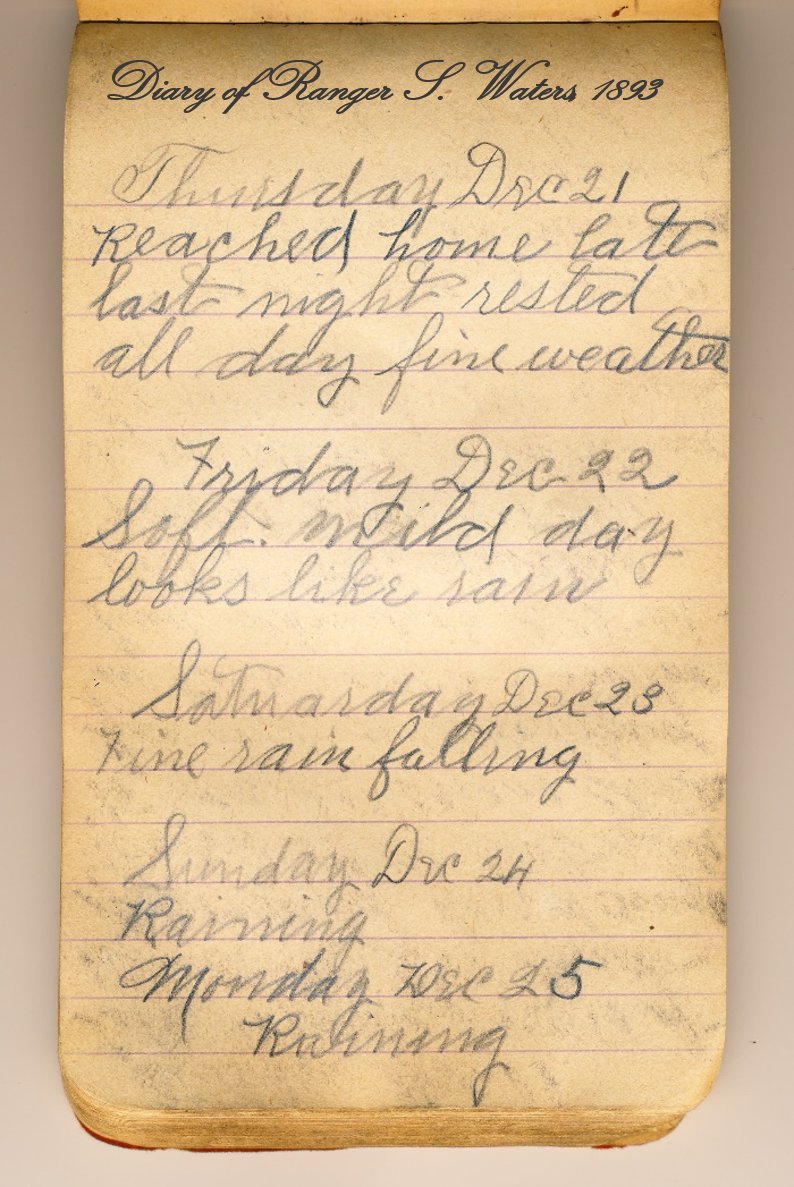 Diary of Ranger S. Waters, 1893
Thursday Dec 21
Reached home late
last night rested
all day fine weather
Friday Dec 22
Soft. mild day
looks like rain
Saturarday Dec 23
Fine rain falling
Sunday Dec 24
Raining
Monday Dec 25
Raining